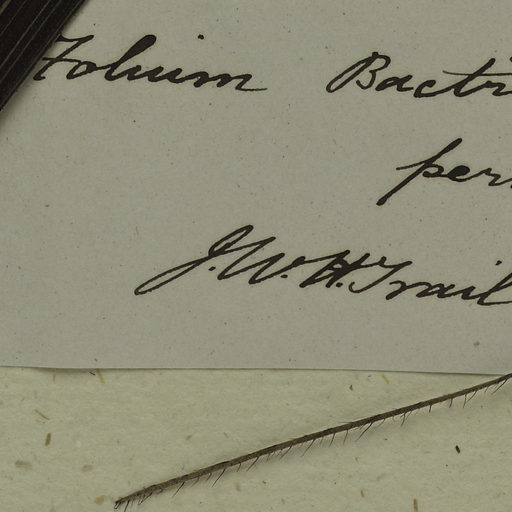 Folium Bactri
per
J.W.H. Trail